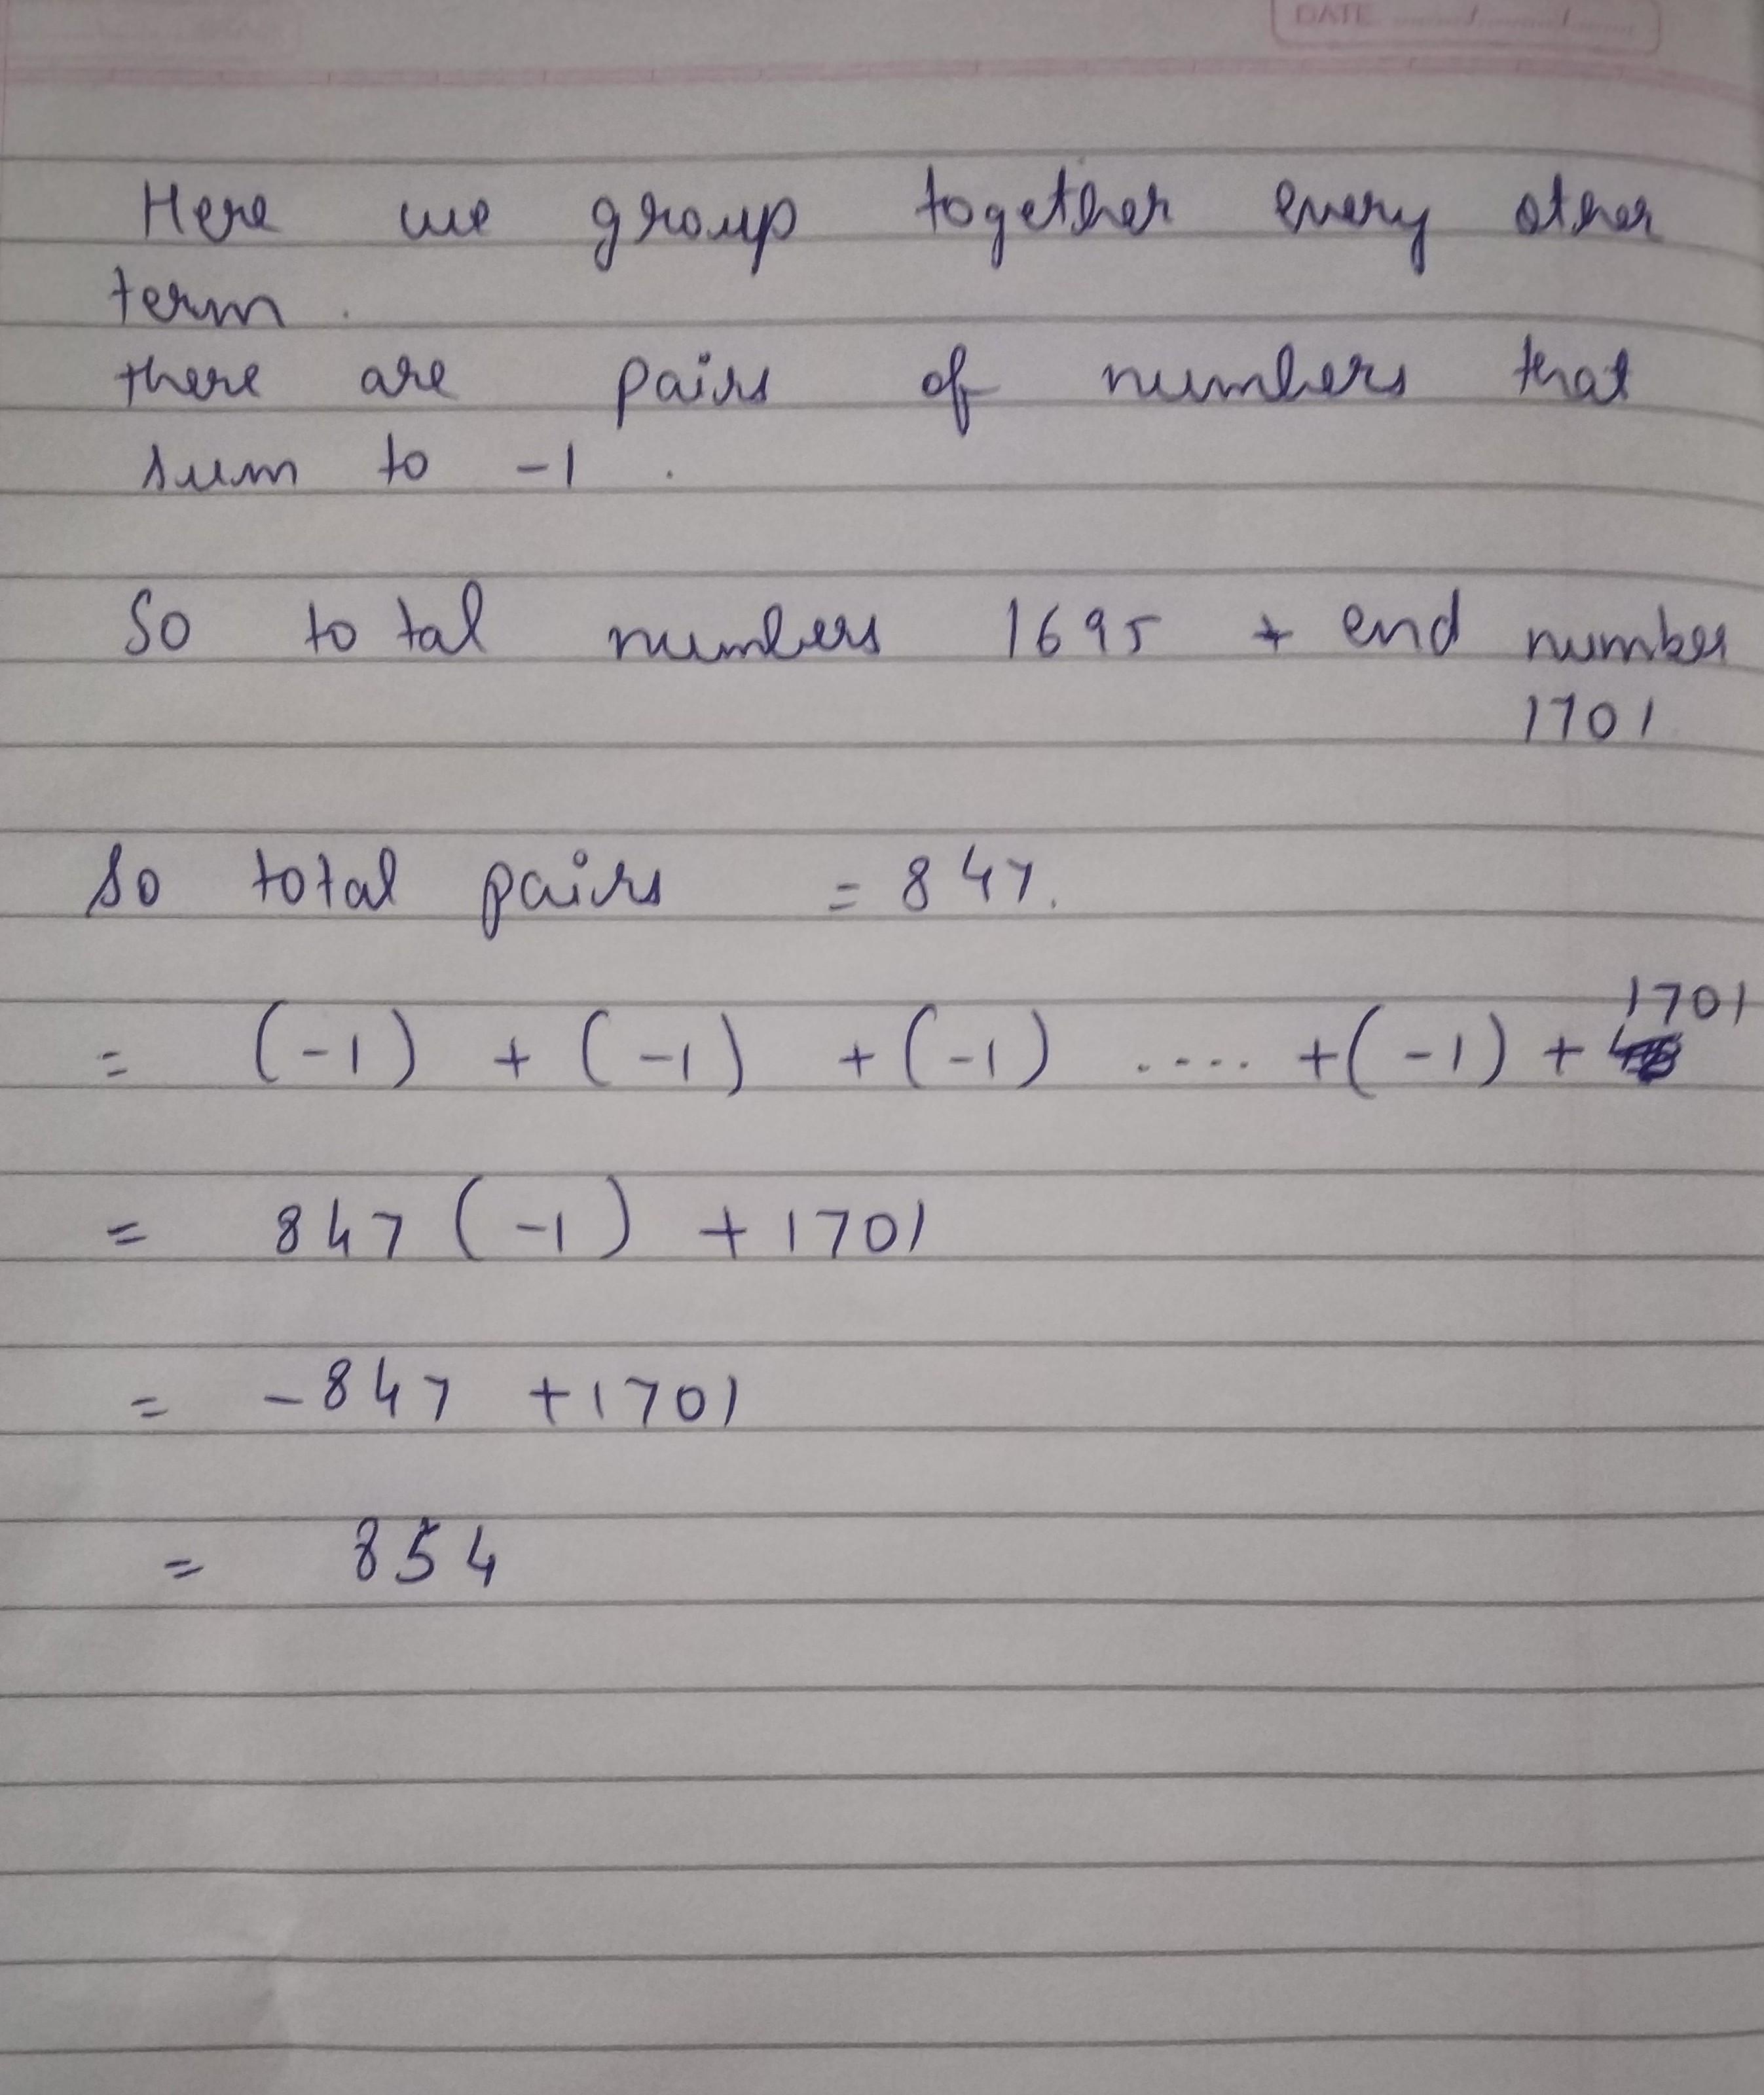 DATE
Here we group together every other
term.
there are pairs of numbers that
sum to -1.
So total numbers 1695 + end number
1701
So total pairs = 847.
= (-1) + (-1) + (-1) .... + (-1) + 1701
= 847 (-1) + 1701
= -847 + 1701
= 854